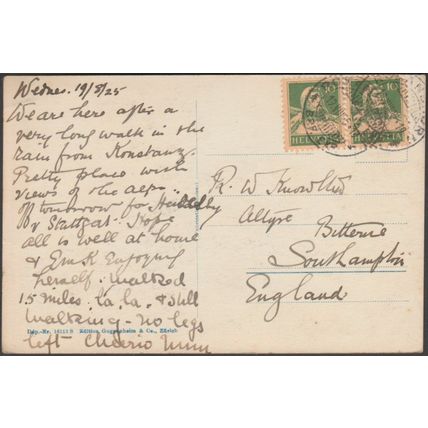 Wednes. 19/8/25
We are here after a
very long walk in the
rain from Konstanz.
Pretty place with
views of the alps..
off tomorrow for
& Stuttgat. Hope
all is well at home
& Enjoying
herself. walked
15 miles. la. la. & still
walking - no legs
left - Cheerio
Dép.-Nr. 14113 B Edition Guggenheim & Co., Zürich
10 10
HELVETIA HELVETIA
R. W.
Bitterne
Southampton
England